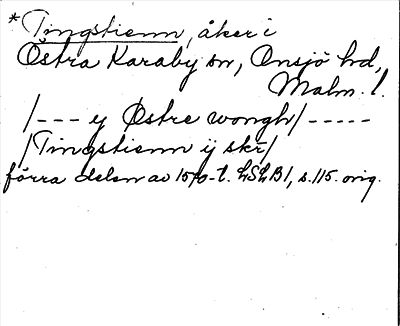 *Tingstienn, åker i
Östra Karaby sn, Onsjö hd,
Malm. l.
/--- y Østre wongh/-----
/Tingstienn ij skr/
förra delen av 1570-t. LSLB1, s. 115. orig.